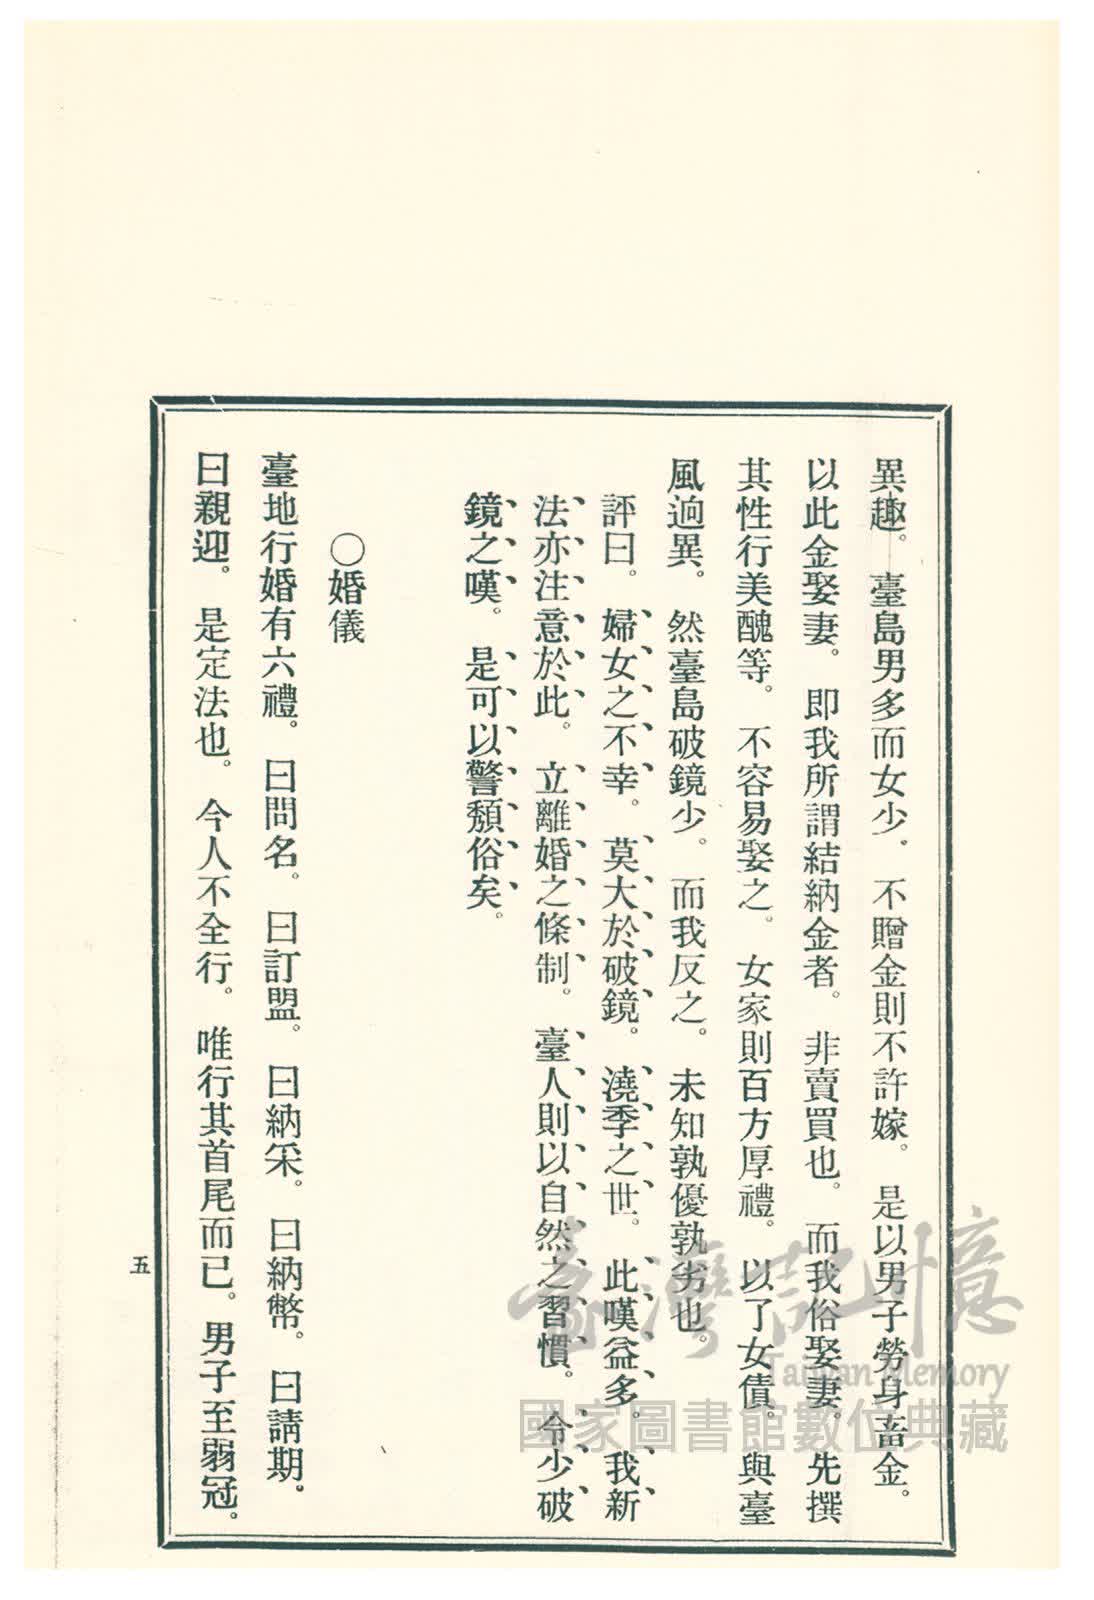 異趣。臺島男多而女少。不贈金則不許嫁。是以男子勞身畜金。
以此金娶妻。即我所謂結納金者。非賣買也。而我俗娶妻。先撰
其性行美醜等。不容易娶之。女家則百方厚禮。以了女債。與臺
風逈異。然臺島破鏡少。而我反之。未知孰優孰劣也。
評曰。婦女之不幸。莫大於破鏡。澆季之世。此嘆益多。我新
法亦注意於此。立離婚之條制。臺人則以自然之習慣。令少破
鏡之嘆。是可以警頽俗矣。
〇婚儀
臺地行婚有六禮。曰問名。曰訂盟。曰納采。曰納幣。曰請期。
曰親迎。是定法也。今人不全行。唯行其首尾而已。男子至弱冠。
五
臺灣記憶
Taiwan Memory
國家圖書館數位典藏